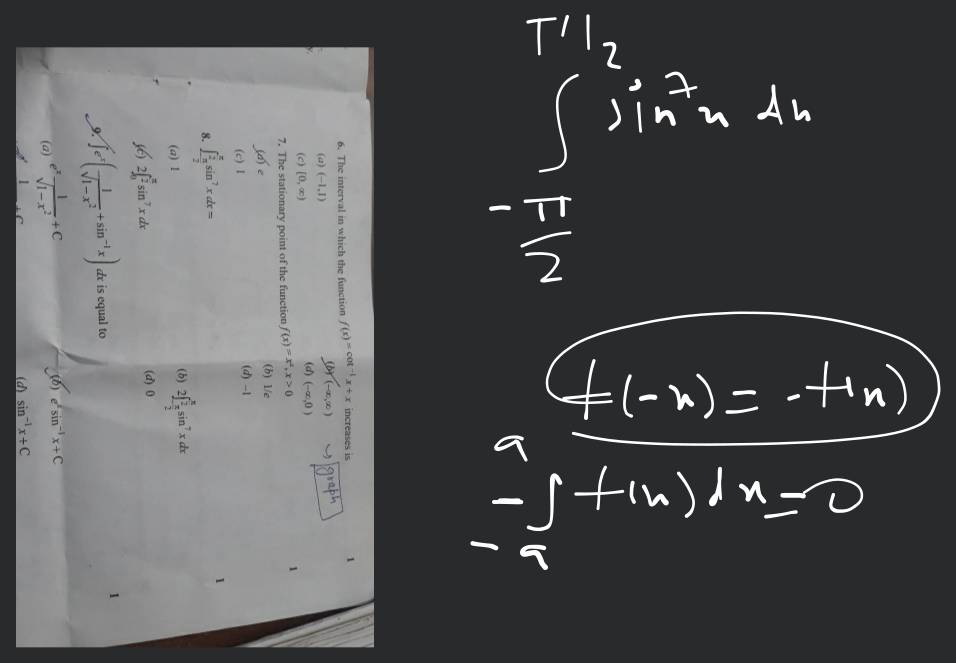 6. The interval in which the function f(x) = cot⁻¹ x + x increases is 1
(a) (-1,1) (b) (-∞,∞) → graph
(c) [0, ∞) (d) (-∞,0)
7. The stationary point of the function f(x) = xˣ, x > 0 1
(a) e (b) 1/e
(c) 1 (d) -1
8. ∫_{-π/2}^{π/2} sin⁷ x dx = 1
(a) 1
(c) 2∫_0^{π/2} sin⁷ x dx (d) 0
9. ∫ eˣ (1/√(1-x²) + sin⁻¹ x) dx is equal to 1
(a) eˣ 1/√(1-x²) + C (b) eˣ sin⁻¹ x + C
(d) sin⁻¹ x + C
π/2
∫ sin⁷x dx
-π/2
f(-x) = -f(x)
a
-∫ f(x) dx = 0
-a